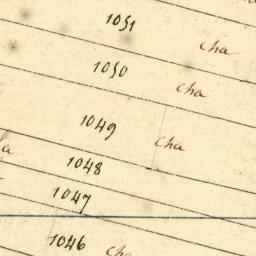 1051 cha
1050 cha
1049 cha
a
1048
1047
1046 cha